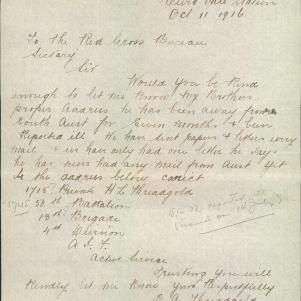 Vale Station
Oct 11 1916
To the Red Cross Bureau
Sir
Would you be kind
enough to let me know my Brothers
proper Address he has been away from
South Aust for Seven months & been
Reported ill We have sent papers & letters every
mail & we have only had one letter he says
he has never had any mail from Aust yet
Is the address below correct
1715 Private H L Threadgold
1715 50th Battalion
13th Brigade
4th Division
A I F
Active Service
Trusting you will
Kindly let me know Yours Respectfully
Threadgold